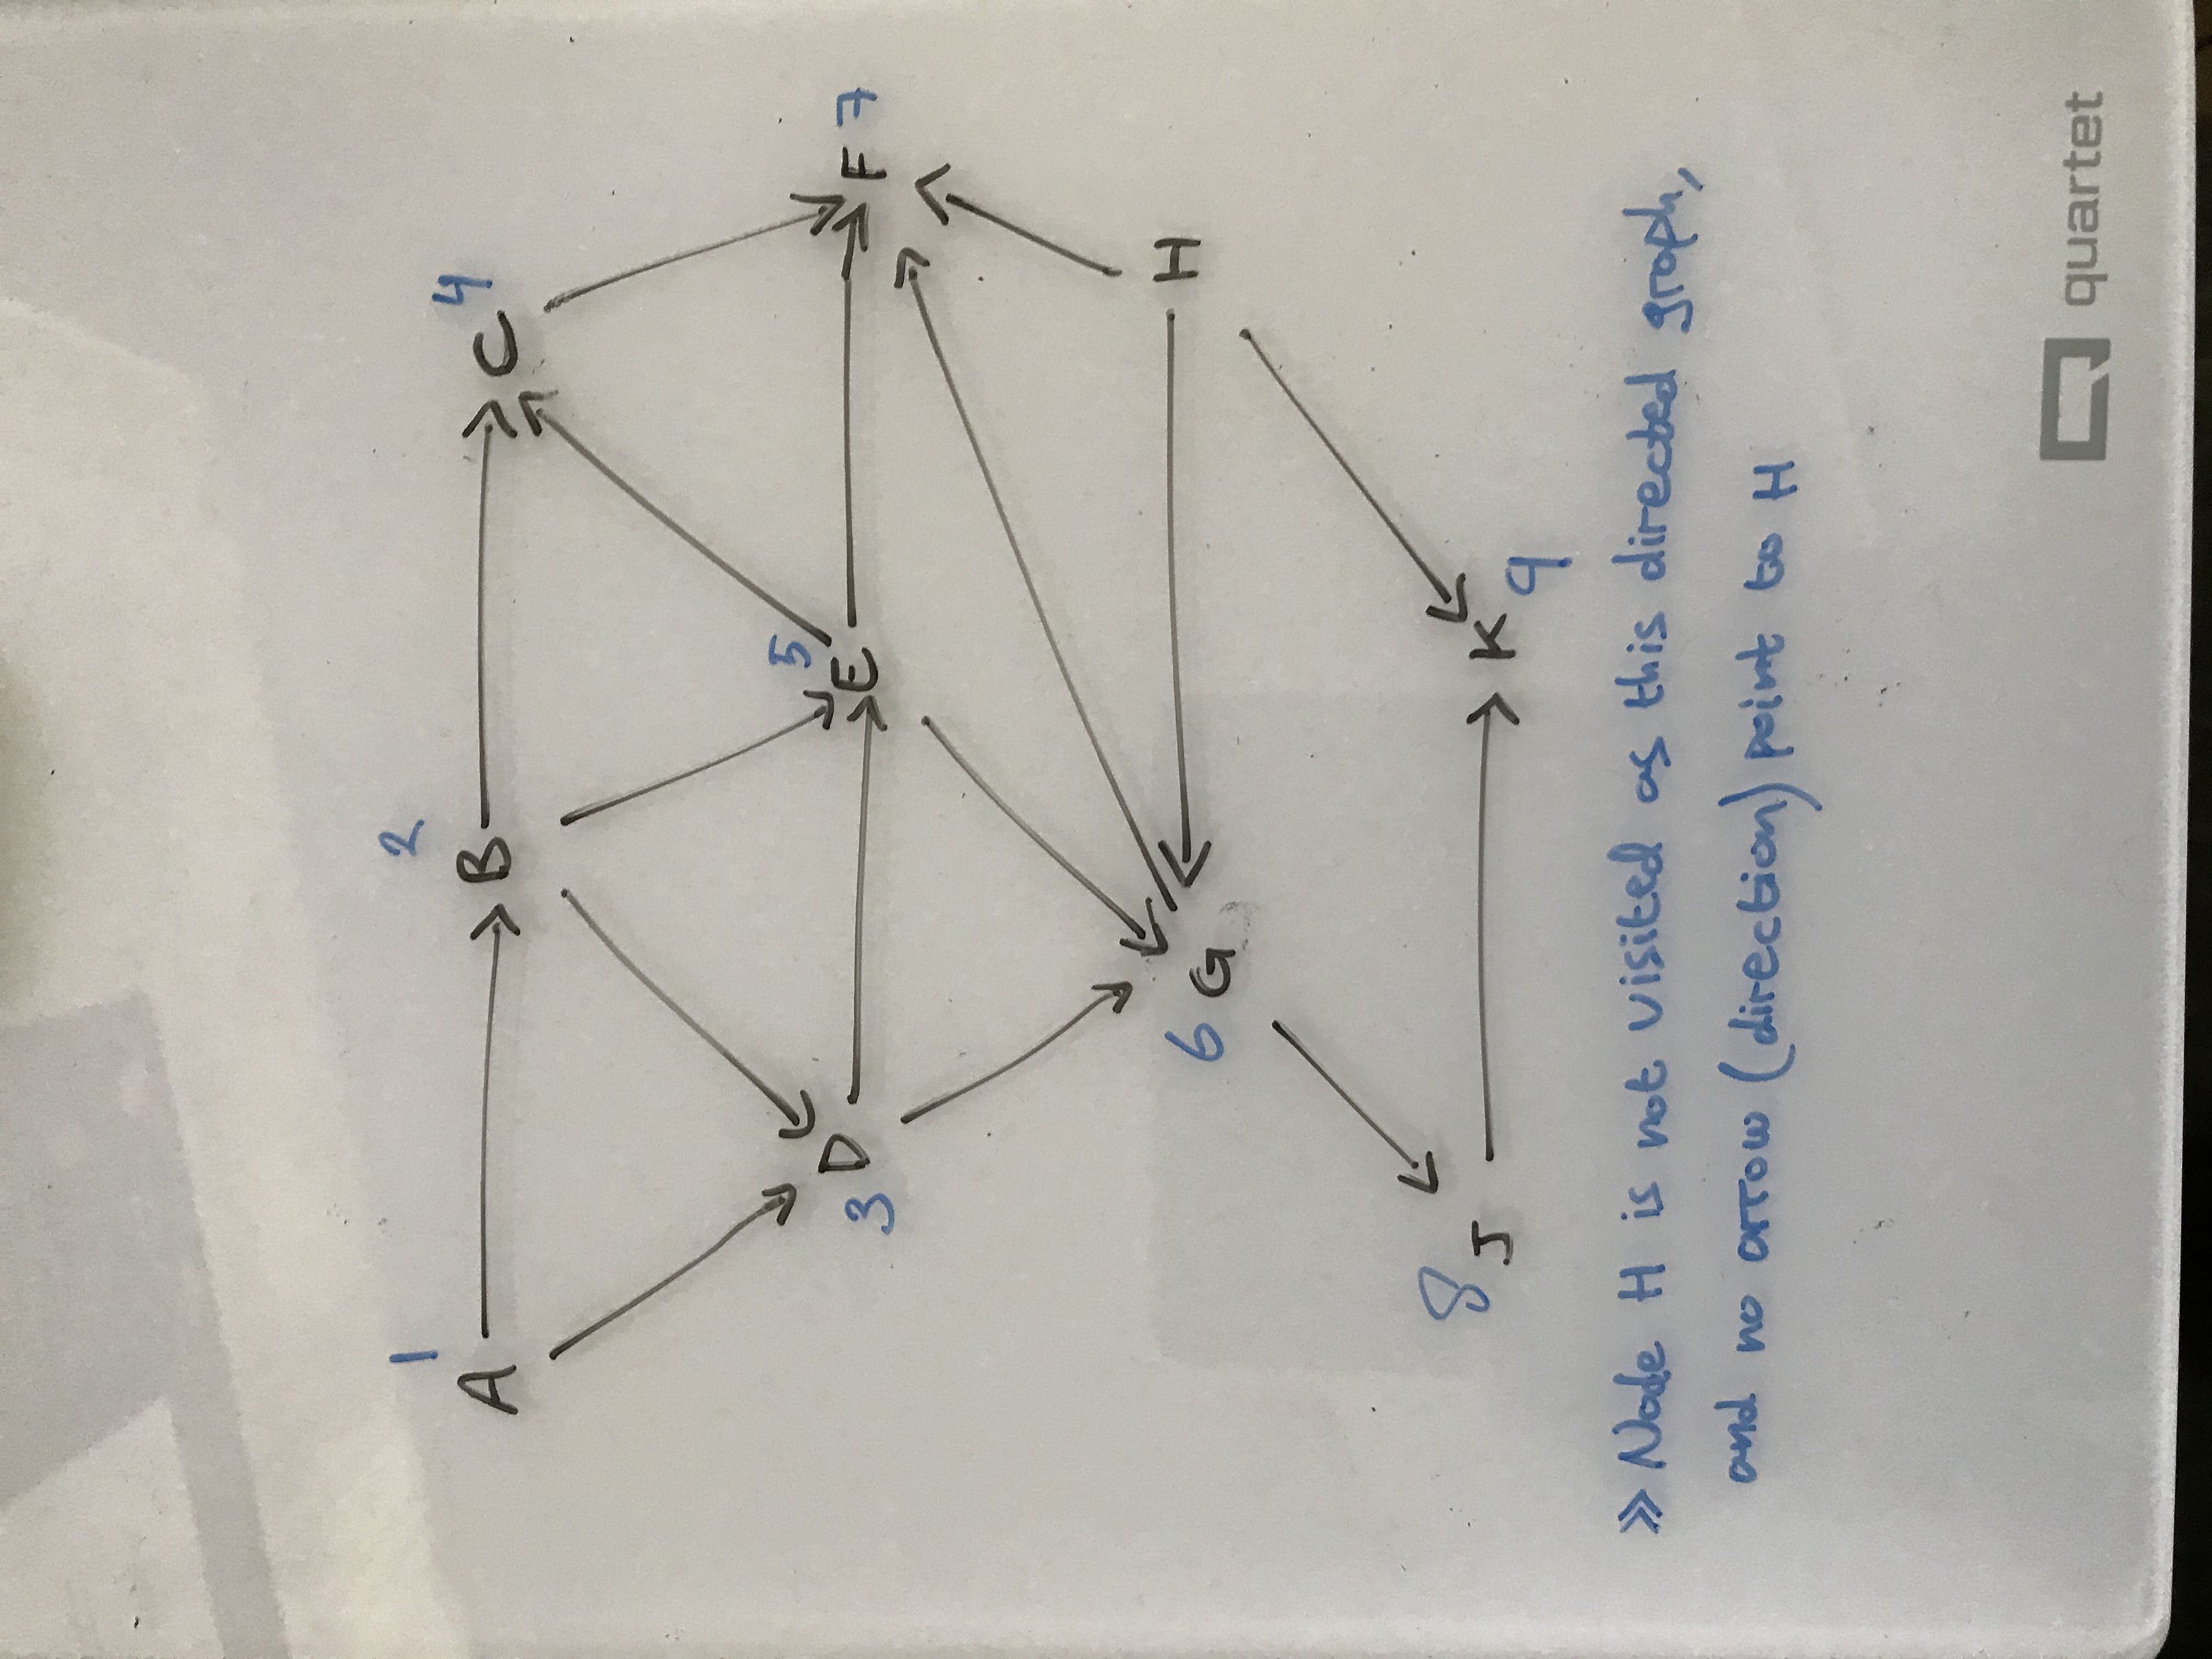 1 2
A B C 4
5
3 D E F 7
6 G H
8 J K
9
» Node H is not visited as this directed graph,
and no arrow (direction) point to H
quartet